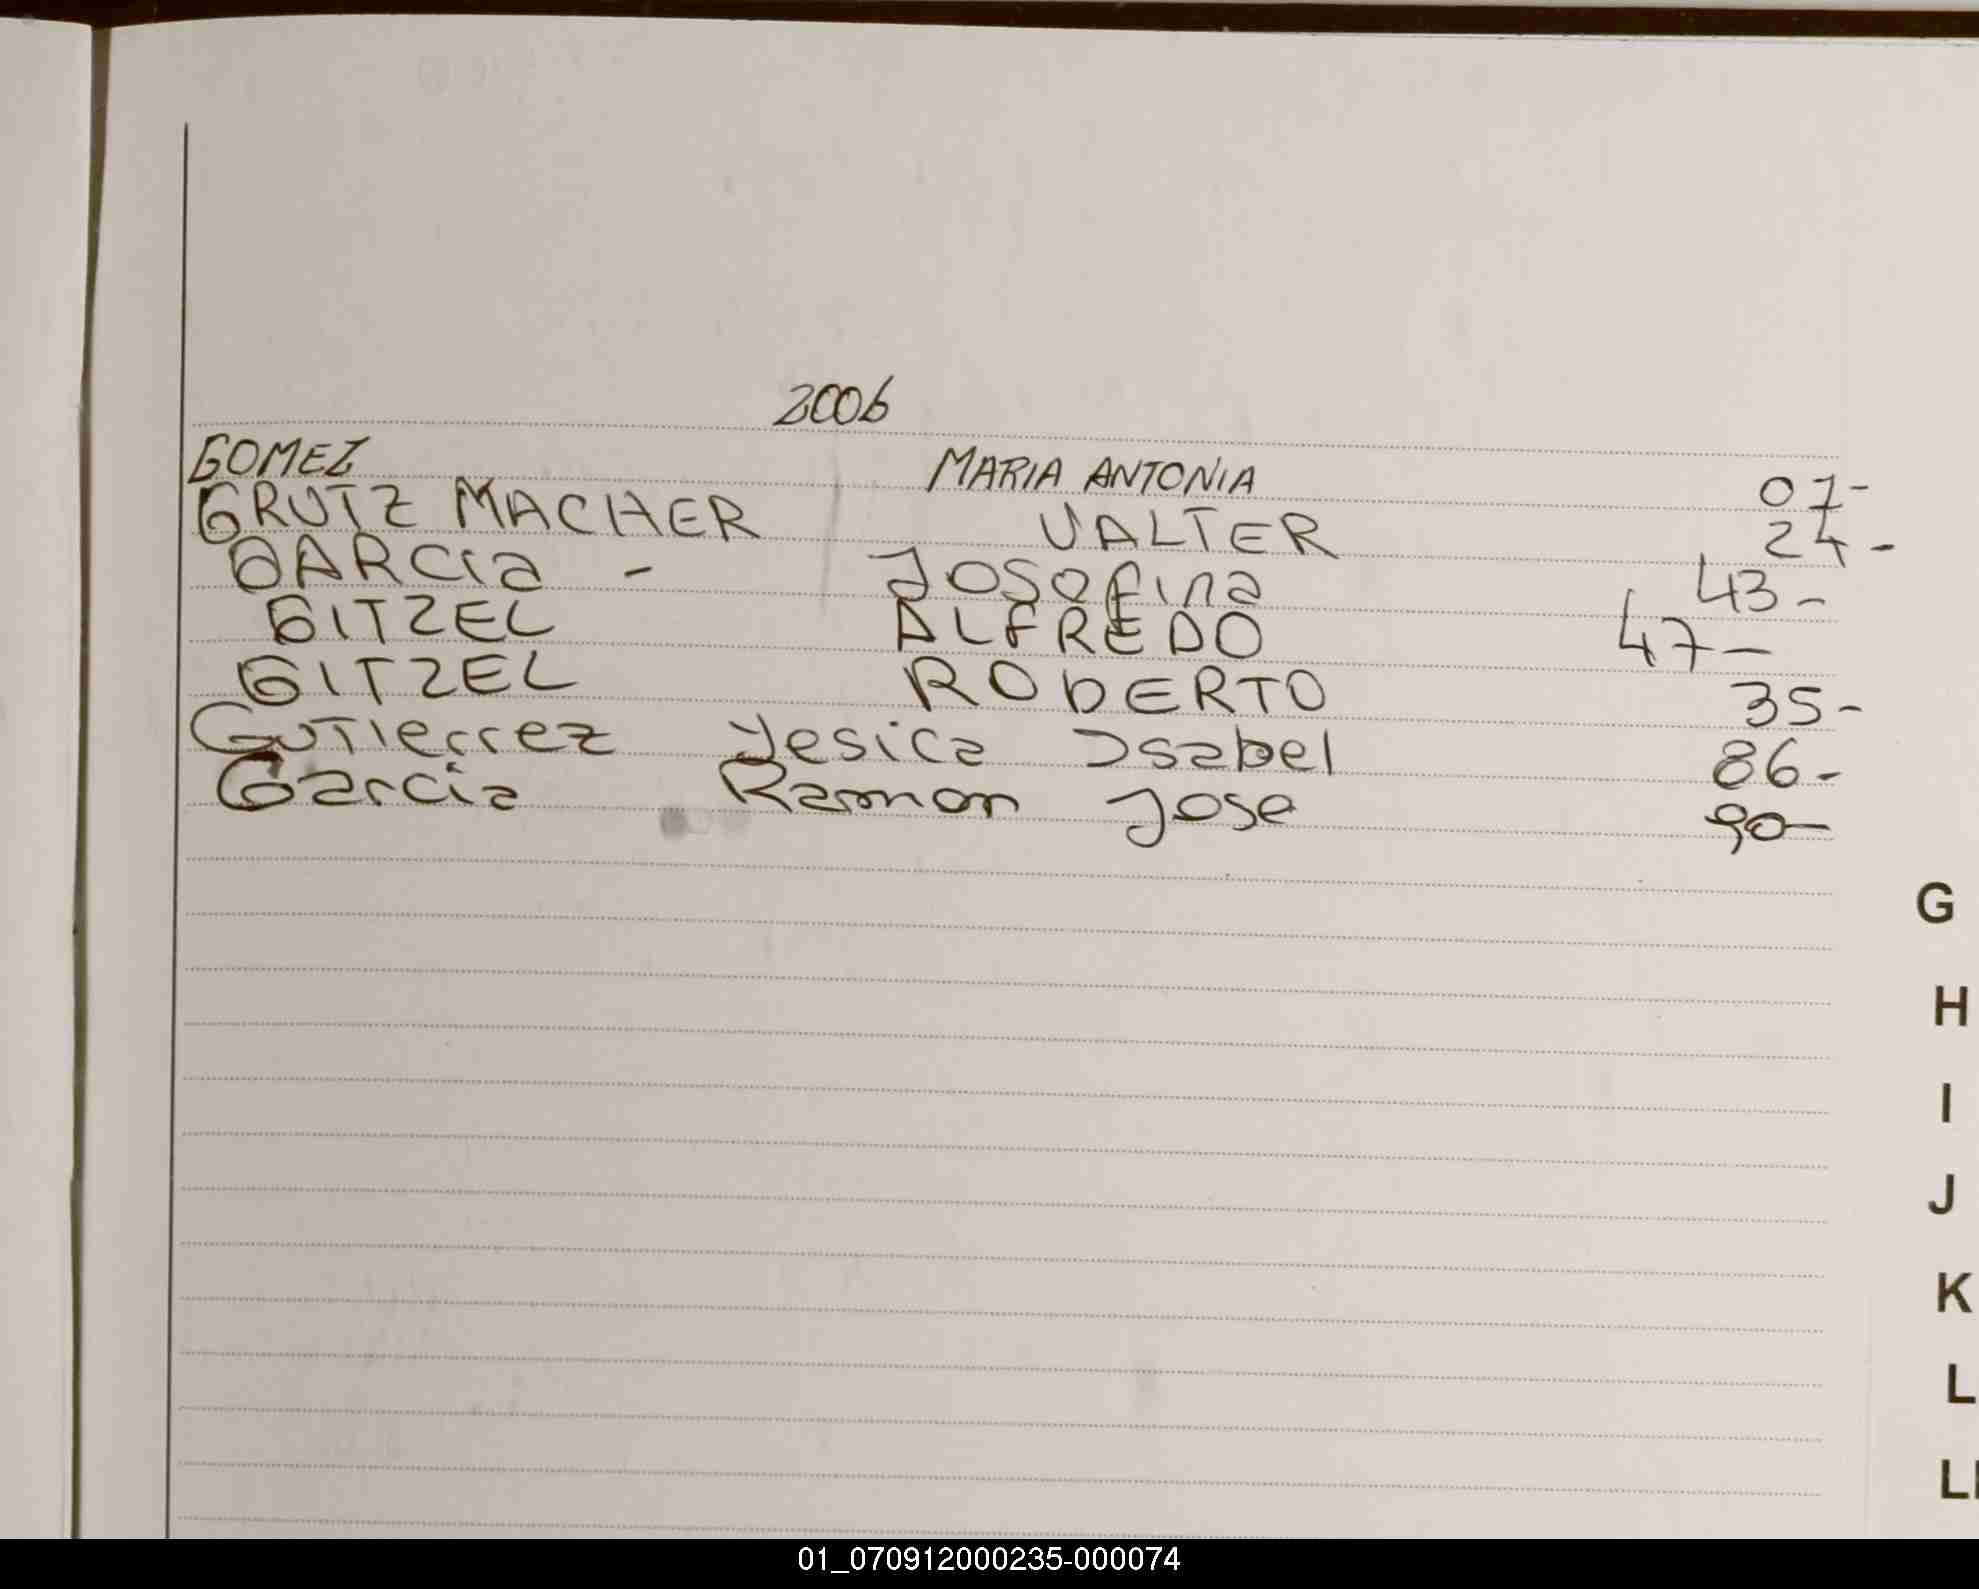 2006
GOMEZ MARIA ANTONIA 07-
GRUTZ MACHER VALTER 24-
GARCIA - Josefina 43-
GITZEL ALFREDO 47-
GITZEL ROBERTO 35-
GuTierrez Yesica Isabel 86-
Garcia Ramon Jose 90-
G
H
I
J
K
L
LL
01_070912000235-000074